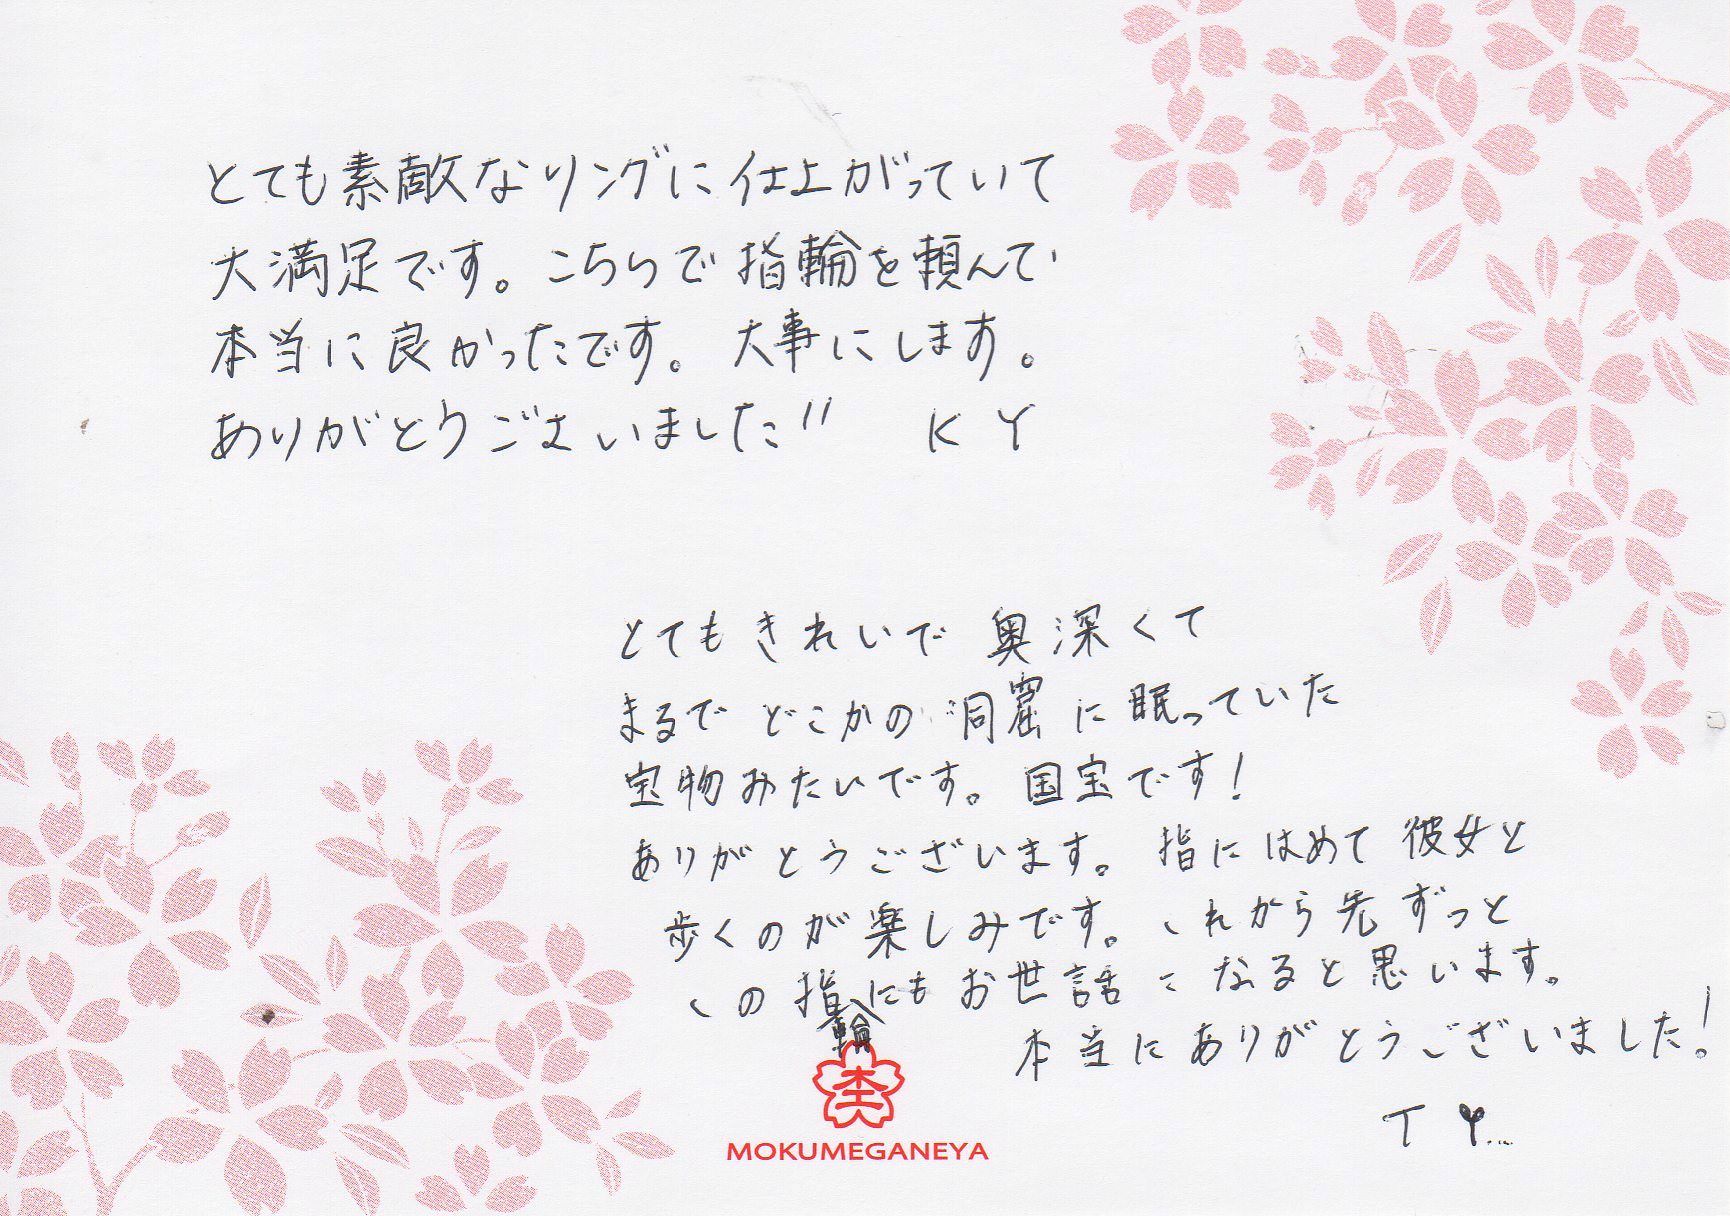 とても素敵なリングに仕上がっていて
大満足です。こちらで指輪を頼んで
本当に良かったです。大事にします。
ありがとうございました!! K Y
とてもきれいで奥深くて
まるでどこかの洞窟に眠っていた
宝物みたいです。国宝です!
ありがとうございます。指にはめて彼女と
歩くのが楽しみです。これから先ずっと
この指輪にもお世話になると思います。
本当にありがとうございました!
T Y...
杢
MOKUMEGANEYA